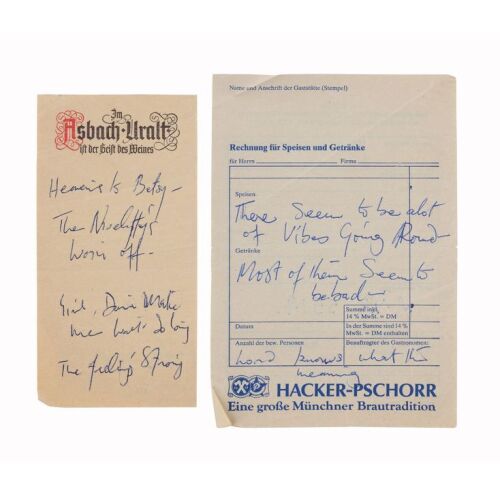 Im
Asbach-Uralt
ist der Geist des Weines
Heavens to Betsy –
The Novelty's
Worn off –
Girl, Don't Make
me wait so long
The feeling's Strong
Name und Anschrift der Gaststätte (Stempel)
Rechnung für Speisen und Getränke
für Herrn
Firma
Speisen
There Seem to be alot
of Vibes Going Round
Getränke
Most of them Seem to
be bad –
Summe inkl.
14 % MwSt. = DM
Datum
In der Summe sind 14 %
MwSt. = DM enthalten
Anzahl der bew. Personen
Beauftragter des Gastronomen:
Lord knows what the
meaning
HACKER-PSCHORR
Eine große Münchner Brautradition